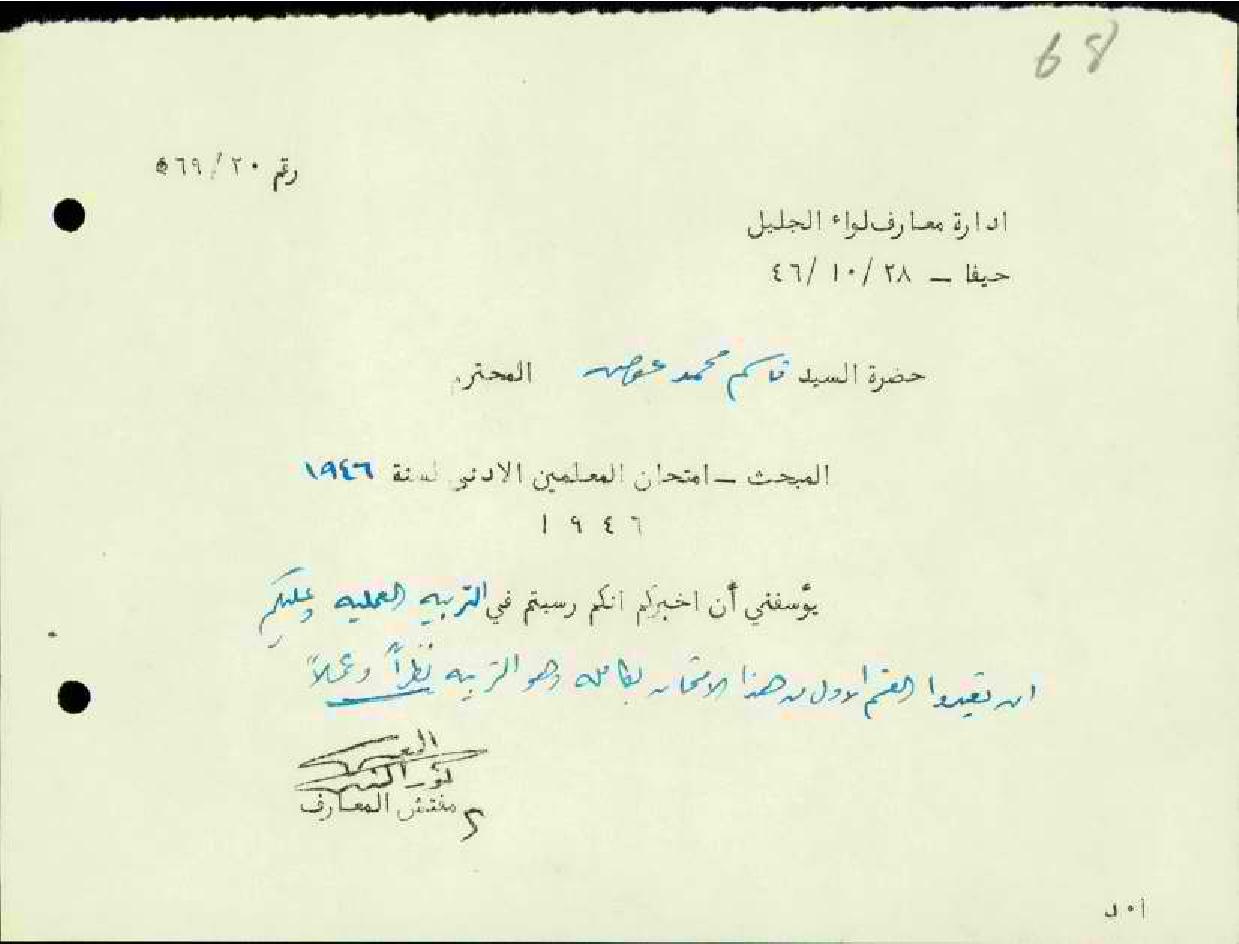 68
رقم ٢٠/ ٥٦٩
ادارة معارف لواء الجليل
حيفا – ٢٨/ ١٠/ ٤٦
حضرة السيد قاسم محمد عوض المحترم
المبحث – امتحان المعلمين الادنى لسنة ١٩٤٦
١٩٤٦
يؤسفني أن اخبركم انكم رسبتم في التربيه العمليه وعليكم
ان تعيدوا القسم الاول من هذا الامتحان بكامله وهو التربيه نظراً وعملاً
مفتش المعارف